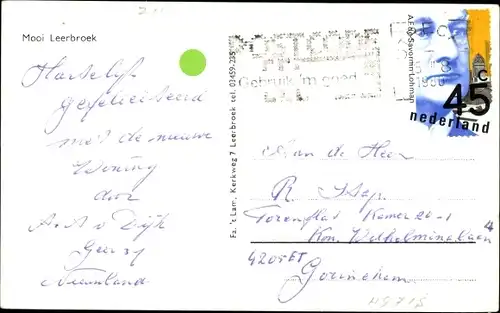 Mooi Leerbroek
Hartelijk
gefeliciteerd
met de nieuwe
Woning
door
A. A v Dijk
Geer 31
Nieuwland
Fa. 't Lam, Kerkweg 7 Leerbroek tel. 03459-235
POSTCODE
Gebruik 'm goed
1980
A.F. de Savornin Lohman
45 c
nederland
Aan de Heer
R
Torenflat Kamer 20-1
Kon. Wilhelminalaan 4
4205 ET
Gorinchem